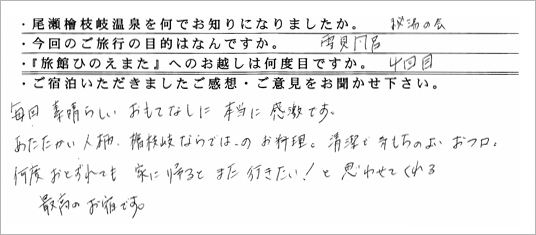 ・尾瀬檜枝岐温泉を何でお知りになりましたか。 秘湯の会
・今回のご旅行の目的はなんですか。 雪見風呂
・『旅館ひのえまた』へのお越しは何度目ですか。 4回目
・ご宿泊いただきましたご感想・ご意見をお聞かせ下さい。
毎回 素晴らしい おもてなしに 本当に 感激です。
あたたかい人柄、檜枝岐ならでは、のお料理。清潔で きもちのよい おフロ。
何度 おとずれても 家に帰ると また 行きたい！と 思わせてくれる
最高の お宿です。